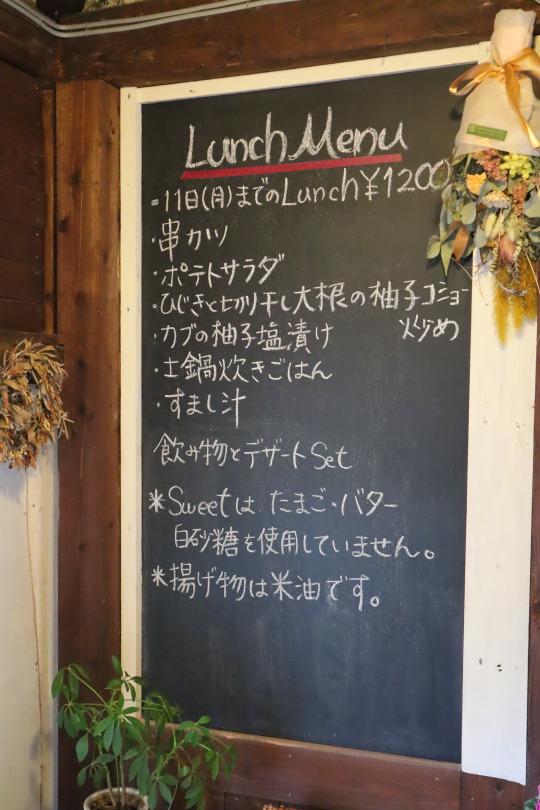 Lunch Menu
・11日(月)までのLunch¥1200
・串カツ
・ポテトサラダ
・ひじきと切り干し大根の柚子コショー
炒め
・カブの柚子塩漬け
・土鍋炊きごはん
・すまし汁
飲み物とデザートSet
*Sweetは たまご・バター
白砂糖を使用していません。
*揚げ物は米油です。